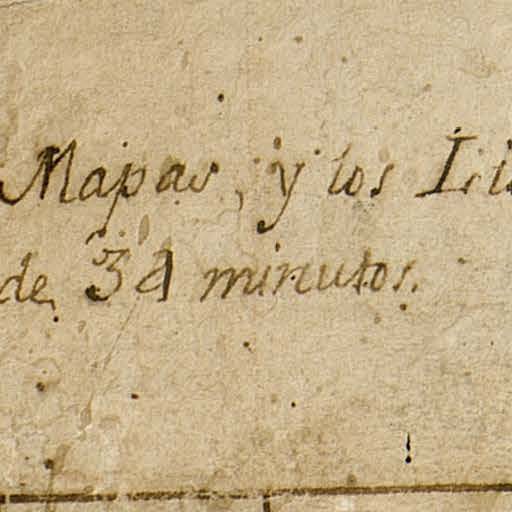 Mapas, y los Li
de 34 minutos.